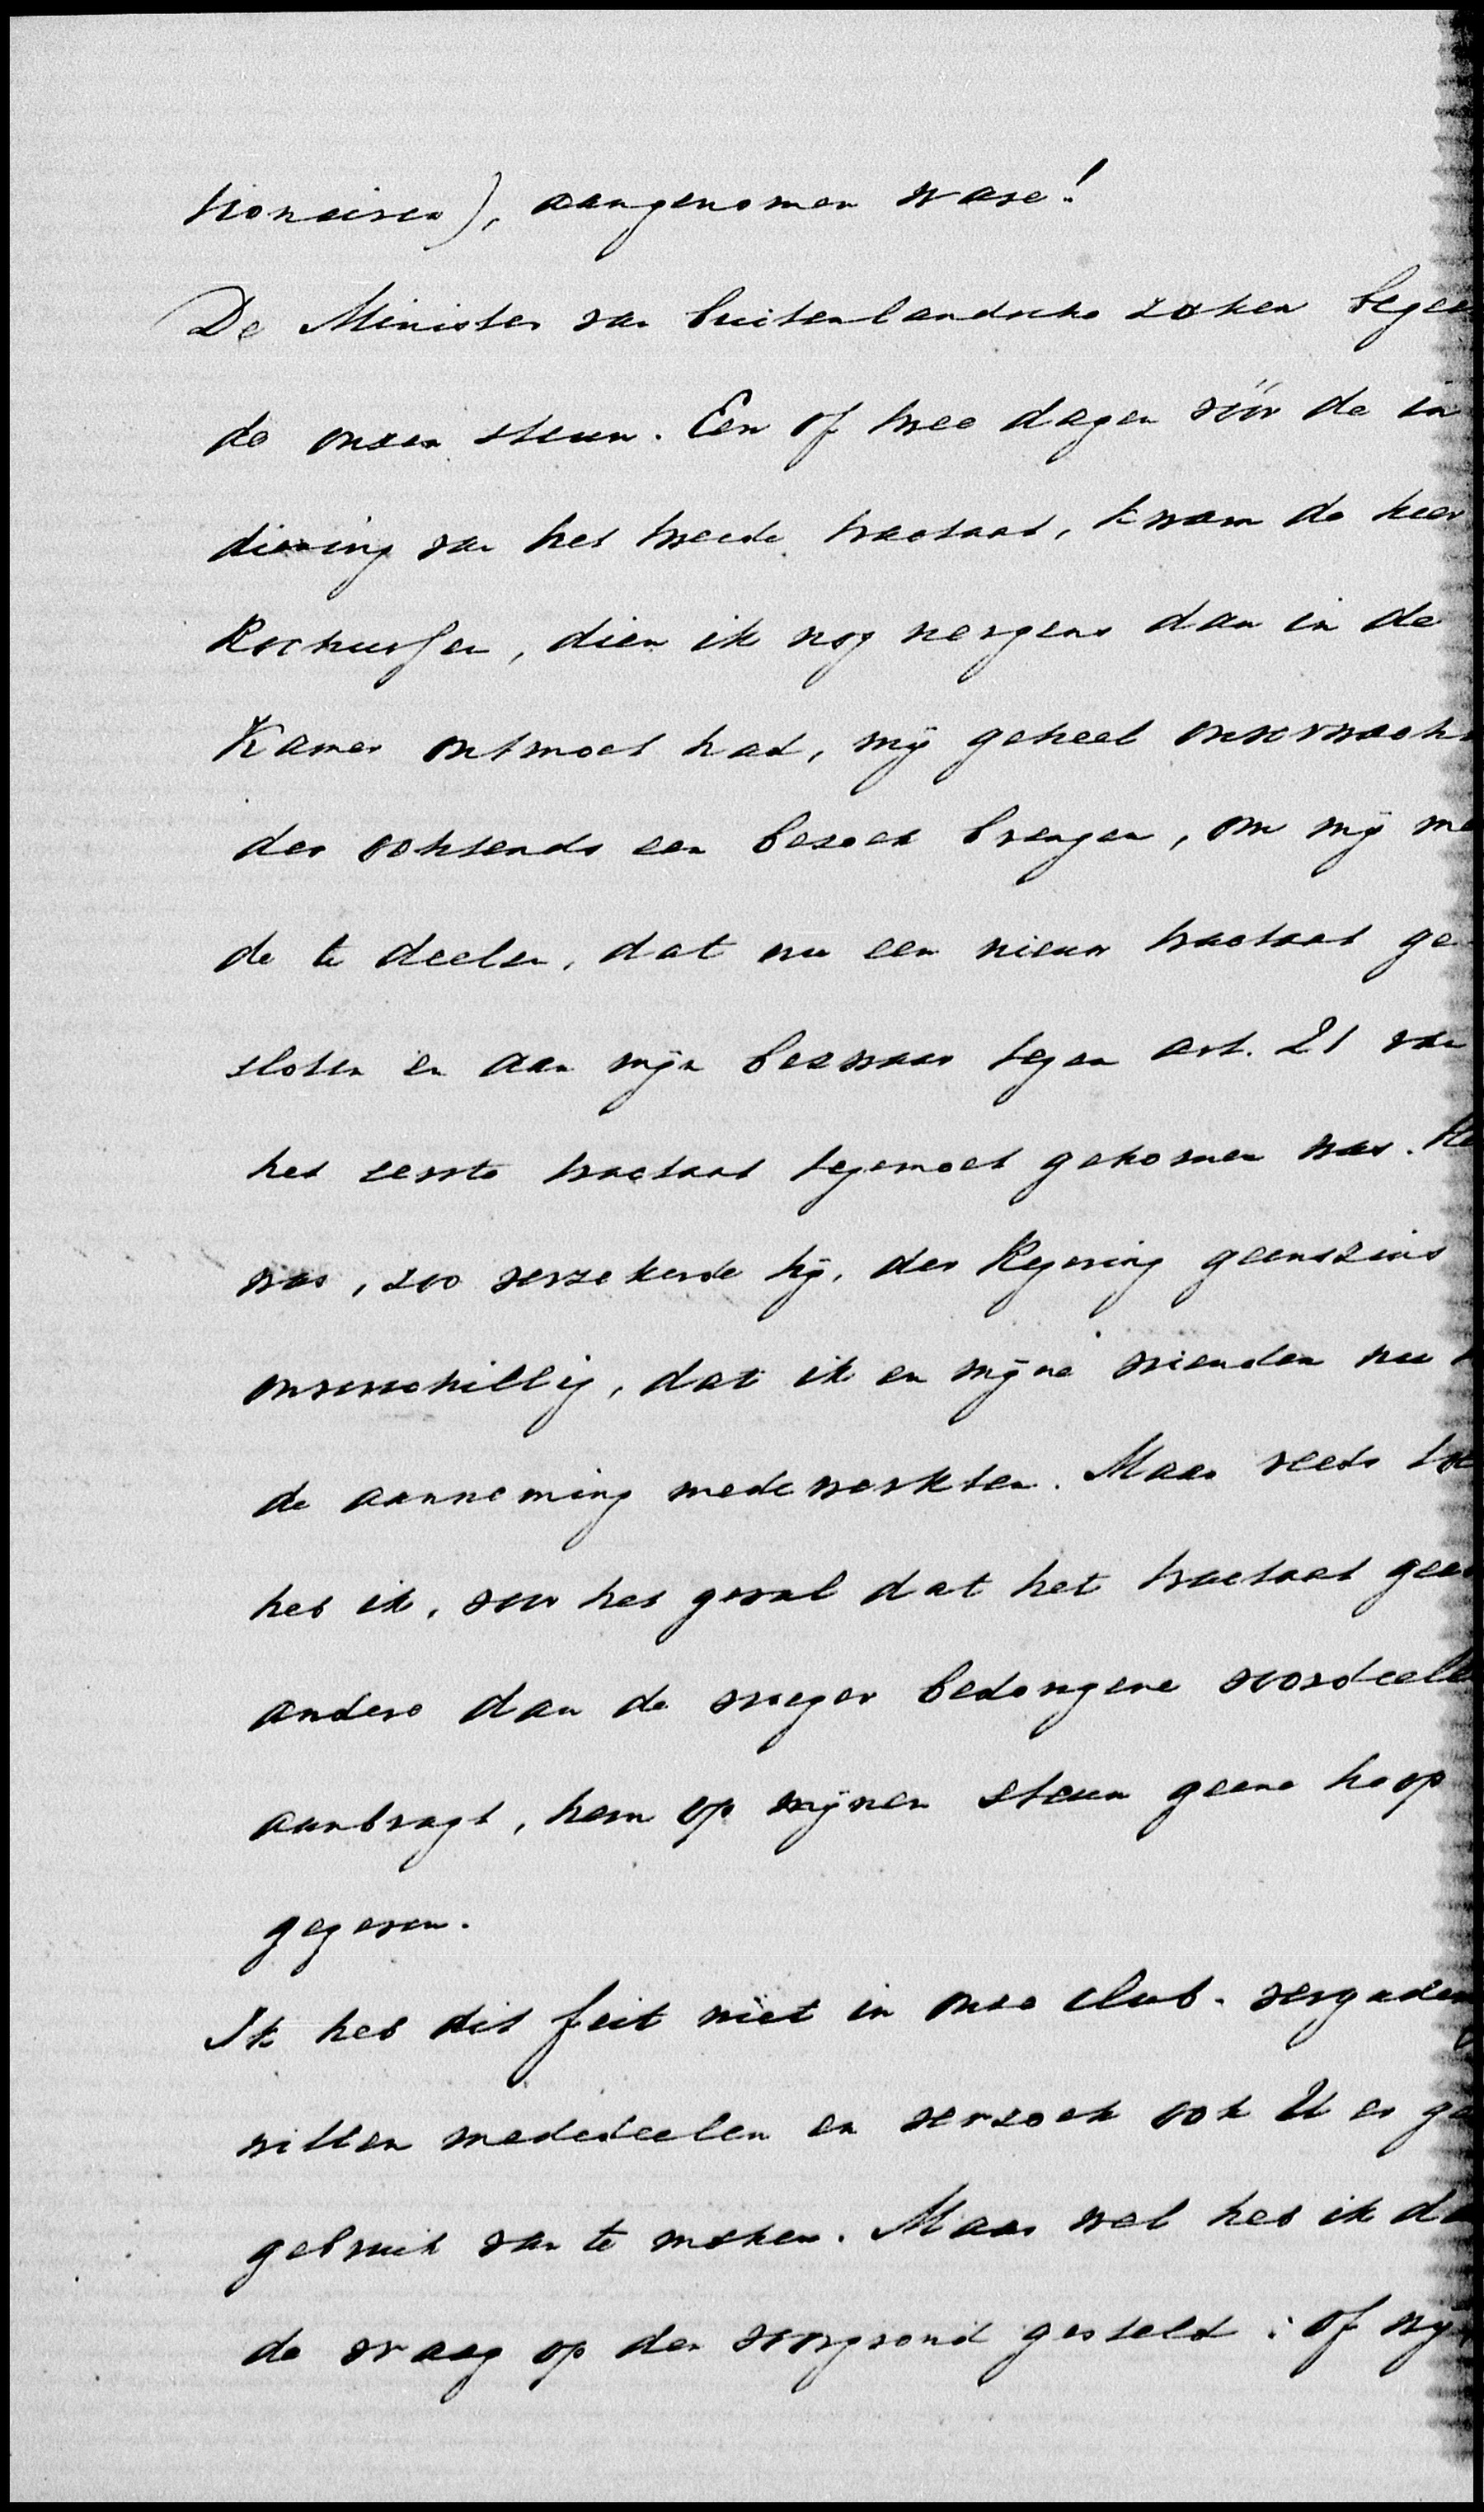 tionairen), aangenomen ware!
De Minister van buitenlandsche zaken begee
de onzen steun. Een of twee dagen vóór de in
diening van het tweede tractaat, kwam de heer
Rochussen, dien ik nog nergens dan in de
Kamer ontmoet had, mij geheel onverwacht
des ochtends een bezoek brengen, om mij me
de te deelen, dat nu een nieuw tractaat ge
sloten en aan mijn bezwaar tegen art. 21 van
het eerste tractaat tegemoet gekomen was. He
was, zoo verzekerde hij, der Regering geenszins
onverschillig, dat ik en mijne vrienden nu
de aanneming medewerkten. Maar reeds toe
heb ik, voor het geval dat het tractaat geen
andere dan de vroeger bedongene voordeele
aanbragt, hem op mijnen steun geene hoop
gegeven.
Ik heb dit feit niet in onze club-vergadering
willen mededeelen en verzoek ook U er ge
gebruik van te maken. Maar wel heb ik da
de vraag op den voorgrond gesteld: of wij